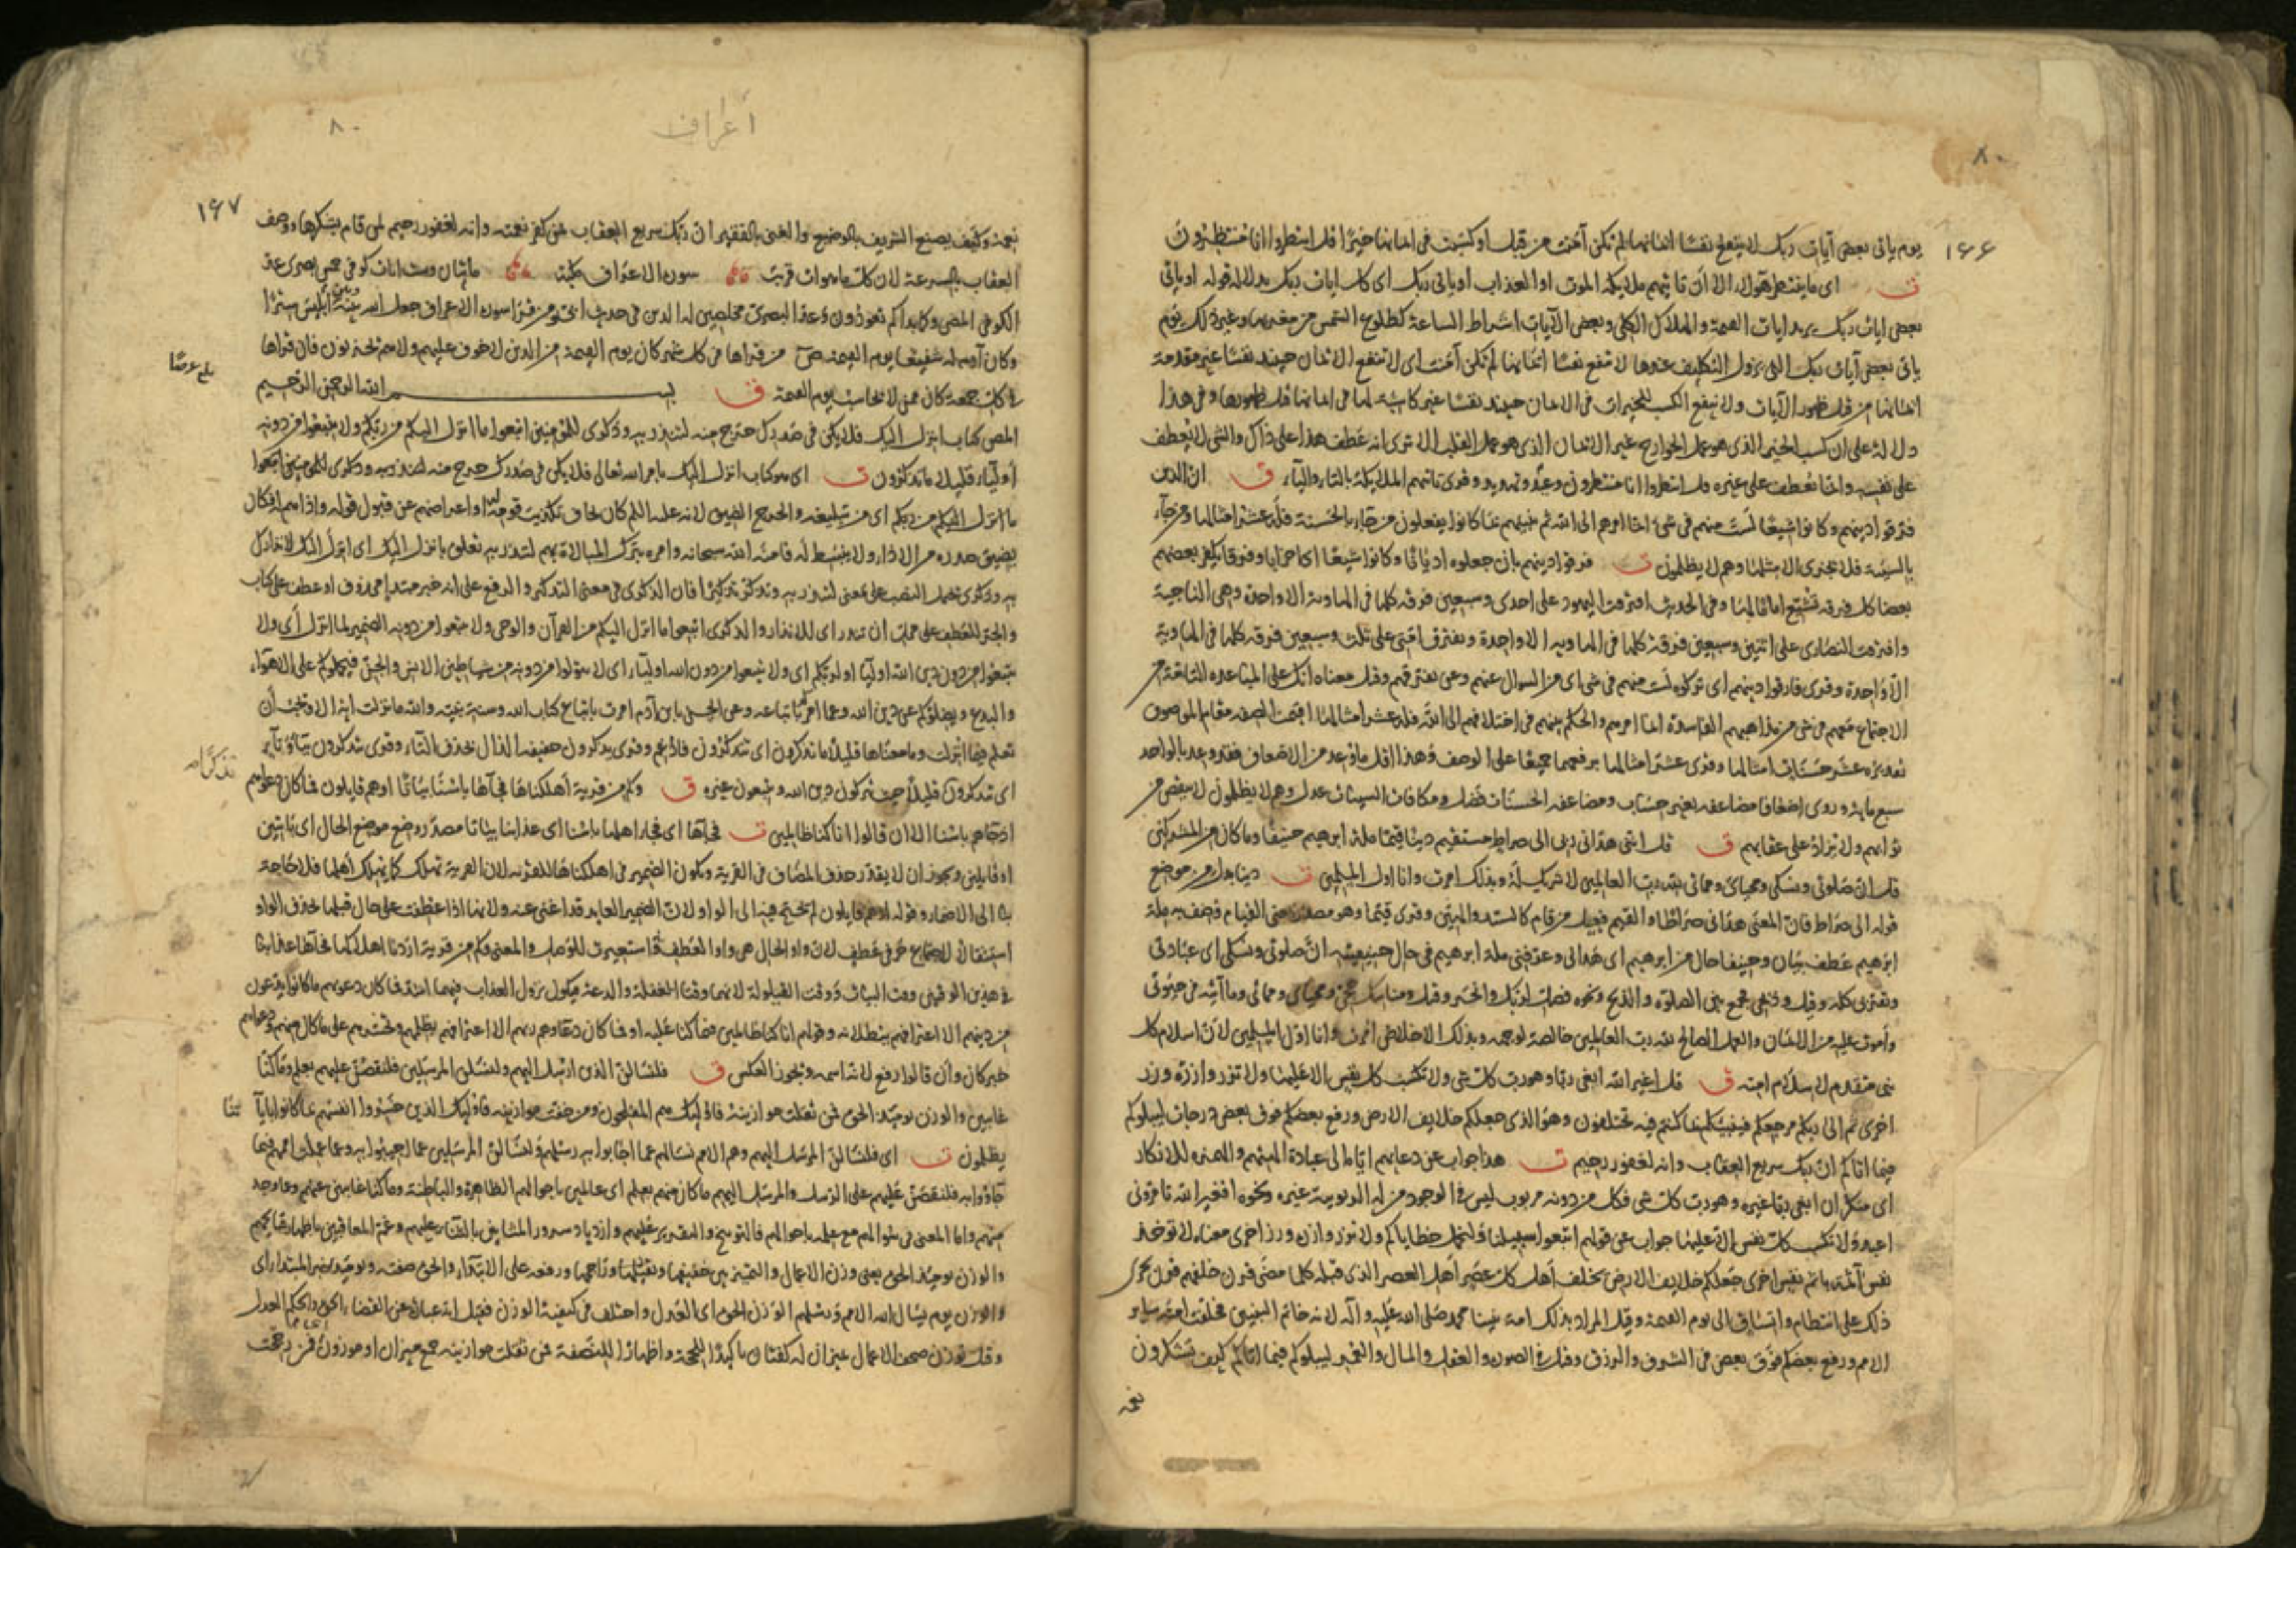 ٨٠
١٦٦
يوم ياتى بعض آيات ربك لا ينفع نفسا ايمانها لم تكن آمنت من قبل او كسبت فى ايمانها خيرا قل انتظروا انا منتظرون
ت اى ما ينتظر هؤلاء الا ان تاتيهم ملايكة الموت او العذاب او ياتى ربك اى كل ايات ربك بدلالة قوله او ياتى
بعض ايات ربك يريد ايات القيمة والهلاك الكلى وبعض الآيات اشراط الساعة كطلوع الشمس من مغربها وغير ذلك يوم
ياتى بعض آيات ربك التى يزول التكليف عندها لا ينفع نفسا ايمانها لم تكن آمنت اى لا ينفع الايمان حينئذ نفسا غير مقدمة
ايمانها من قبل ظهور الآيات ولا ينفع الكسب للخيرات فى الايمان حينئذ نفسا غير كاسبة لها فى ايمانها قبل ظهورها وفى هذا
دلالة على ان كسب الخير الذى هو عمل الجوارح غير الايمان الذى هو عمل القلب الا ترى انه عطف هذا على ذاك والشى لا يعطف
على نفسه وانما يعطف على غيره قل انتظروا انا منتظرون وعيد وتهديد وقرى ياتيهم الملايكة بالتاء والياء ق ان الذين
فرقوا دينهم وكانوا شيعا لست منهم فى شئ انما امرهم الى الله ثم ينبئهم بما كانوا يفعلون من جاء بالحسنة فله عشر امثالها ومن جاء
بالسيئة فلا يجزى الا مثلها وهم لا يظلمون ت فرقوا دينهم بان جعلوه اديانا وكانوا شيعا اى احزابا وفرقا يكفر بعضهم
بعضا كل فرقة تشيع اماما لها وفى الحديث افترقت اليهود على احدى وسبعين فرقة كلها فى الهاوية الا واحدة وهى الناجية
وافترقت النصارى على اثنتين وسبعين فرقة كلها فى الهاوية الا واحدة وتفترق امتى على ثلث وسبعين فرقة كلها فى الهاوية
الا واحدة وقرى فارقوا دينهم اى تركوه لست منهم فى شى اى من السوال عنهم وعن تفرقهم وقيل معناه انك على المباعدة التامة من
الاجتماع معهم فى شى من مذاهبهم الفاسدة انما امرهم والحكم بينهم فى اختلافهم الى الله فله عشر امثالها اقيمت الصفة مقام الموصوف
تقديره عشر حسنات امثالها وقرى عشر امثالها برفعهما جميعا على الوصف وهذا اقل ما وعد من الاضعاف فقد وعد بالواحد
سبع مايه وروى اضعافا مضاعفه بغير حساب ومضاعفة الحسنات فضل ومكافات السيئات عدل وهم لا يظلمون لا ينقص من
ثوابهم ولا يزاد على عقابهم ق قل اننى هدانى ربى الى صراط مستقيم دينا قيما ملة ابرهيم حنيفا وما كان من المشركين
قل ان صلوتى ونسكى ومحياى ومماتى لله رب العالمين لا شريك له وبذلك امرت وانا اول المسلمين ت دينا بدل من موضع
قوله الى صراط فان المعنى هدانى صراطا والقيم فيعل من قام كالسيد والهين وقرى قيما وهو مصدر بمعنى القيام وصف به ملة
ابرهيم عطف بيان وحنيفا حال من ابرهيم اى هدانى وعرفنى ملة ابرهيم فى حال حنيفيته ان صلوتى ونسكى اى عبادتى
وتقربى كله وقيل وذبحى جمع بين الصلوة والذبح ونحوه فصل لربك وانحر وقيل ومناسك حجى ومحياى ومماتى وما آتيه فى حيوتى
واموت عليه من الايمان والعمل الصالح لله رب العالمين خالصة لوجهه وبذلك الاخلاص امرت وانا اول المسلمين لان اسلام كل
نبى متقدم لاسلام امته ق قل اغير الله ابغى ربا وهو رب كل شى ولا تكسب كل نفس الا عليها ولا تزر وازرة وزر
اخرى ثم الى ربكم مرجعكم فينبئكم بما كنتم فيه تختلفون وهو الذى جعلكم خلايف الارض ورفع بعضكم فوق بعض درجات ليبلوكم
فيما اتاكم ان ربك سريع العقاب وانه لغفور رحيم ت هذا جواب عن دعايهم اياه الى عبادة الهتهم والهمزة للانكار
اى منكر ان ابغى ربا غيره وهو رب كل شى فكل من دونه مربوب ليس فى الوجود من له الربوبية غيره ونحوه افغير الله تامرونى
اعبد ولا تكسب كل نفس الا عليها جواب عن قولهم اتبعوا سبيلنا ولنحمل خطاياكم ولا تزر وازرة وزر اخرى معناه لا توخذ
نفس آثمة باثم نفس اخرى جعلكم خلايف الارض يخلف اهل كل عصر اهل العصر الذى قبله كلما مضى قرن خلفهم قرن يجرى
ذلك على انتظام واتساق الى يوم القيمة وقيل المراد بذلك امة نبينا محمد صلى الله عليه وآله لانه خاتم النبيين فخلفت امته ساير
الامم ورفع بعضكم فوق بعض فى الشرف والرزق وقيل فى الصورة والعقل والمال والعمر ليبلوكم فيما اتاكم كيف تشكرون
نعمه
أعراف
٨٠
١٦٧
نعمه وكيف يصنع الشريف بالوضيع والغنى بالفقير ان ربك سريع العقاب لمن كفر نعمته وانه لغفور رحيم لمن قام بشكرها ووصف
العقاب بالسرعة لان كل ما هو ات قريب سورة الاعراف مكية مايتان وست ايات كوفى خمس بصرى عد
الكوفى المص وكما بداكم تعودون وعد البصرى مخلصين له الدين فى حديث ابى ومن قرا سورة الاعراف جعل الله بينه وبين ابليس سترا
وكان آدم له شفيعا يوم القيمة ص من قراها فى كل شهر كان يوم القيمة من الذين لا خوف عليهم ولا هم يحزنون فان قراها
فى كل جمعة كان ممن لا يحاسب يوم القيمة ق بسم الله الرحمن الرحيم
المص كتاب انزل اليك فلا يكن فى صدرك حرج منه لتنذر به وذكرى للمؤمنين اتبعوا ما انزل اليكم من ربكم ولا تتبعوا من دونه
اولياء قليلا ما تذكرون ت اى هو كتاب انزل اليك بامر الله تعالى فلا يكن فى صدرك حرج منه لتنذر به وذكرى للمومنين اتبعوا
ما انزل اليكم من ربكم اى من تبليغه والحرج الضيق لانه عليه السلم كان يخاف تكذيب قومه له واعراضهم عن قبول قوله واذاهم له فكان
يضيق صدره من الاذاء ولا ينبسط له فامنه الله سبحانه وامره بترك المبالاة بهم لتنذر به تعلق بانزل اليك اى انزل اليك لانذارك
به وذكرى يحتمل النصب على معنى لتنذر به وتذكر تذكيرا فان الذكرى فى معنى التذكير والرفع على انه خبر مبتدا محذوف او عطف على كتاب
والجر للعطف على محل ان تنذر اى للانذار والذكرى اتبعوا ما انزل اليكم من القرآن والوحى ولا تتبعوا من دونه الضمير لما انزل اى ولا
تتبعوا من دون دين الله اوليا او لربكم اى ولا تتبعوا من دون الله اولياء اى لا تتولوا من دونه من شياطين الانس والجن فيحملوكم على الاهواء
والبدع ويضلوكم عن دين الله وعما امرتم باتباعه وعن الحسن يا بن آدم امرت باتباع كتاب الله وسنة نبيه والله ما نزلت اية الا وتحب أن
تعلم فيما انزلت وما معناها قليلا ما تذكرون اى تتذكرون فادغم وقرى تذكرون خفيفة الذال بحذف التاء وقرى يتذكرون بياء وتاء
اى تتذكرون قليلا حيث تتركون دين الله وتتبعون غيره ق وكم من قرية اهلكناها فجاءها باسنا بياتا او هم قايلون فما كان دعواهم
اذ جاءهم باسنا الا ان قالوا انا كنا ظالمين ت فجاءها اى فجاء اهلها باسنا اى عذابنا بياتا مصدر وضع موضع الحال اى بايتين
او قايلين ويجوز ان لا يقدر حذف المضاف فى القرية ويكون الضمير فى اهلكناها للقرية لان القرية تهلك كما يهلك اهلها فلا حاجة
بنا الى الاضمار وقوله او هم قايلون لم يحتج فيه الى الواو لان الضمير العايد قد اغنى عنه ولانها اذا عطفت على حال قبلها تحذف الواو
استثقالا لاجتماع حرفى عطف لان واو الحال هى واو العطف استعيرت للوصل والمعنى وكم من قرية اردنا اهلاكها فجاءها عذابنا
فى هذين الوقتين وقت البيات ووقت القيلولة لانهما وقتا الغفلة والدعة فيكون نزول العذاب فيهما اشد فما كان دعويهم ما كانوا يدعون
من دينهم الا اعترافهم ببطلانه وقولهم انا كنا ظالمين فيما كنا عليه او فما كان دعاوهم ربهم الا اعترافهم بظلمهم وتحسرهم على ما كان منهم ودعواهم
خبر كان وان قالوا رفع لانه اسمه ويجوز العكس ق فلنسالن الذين ارسل اليهم ولنسئلن المرسلين فلنقصن عليهم بعلم وما كنا
غايبين والوزن يومئذ الحق فمن ثقلت موازينه فاولئك هم المفلحون ومن خفت موازينه فاولئك الذين خسروا انفسهم بما كانوا باياتنا
يظلمون ت اى فلنسالن المرسل اليهم وهم الامم نسالهم عما اجابوا به رسلهم ولنسالن المرسلين عما اجيبوا به وعما عملت اممهم فيما
جاؤوا به فلنقصن عليهم على الرسل والمرسل اليهم ما كان منهم بعلم اى عالمين باحوالهم الظاهرة والباطنة وما كنا غايبين عنهم وعما وجد
منهم واما المعنى فى سوالهم مع علمه باحوالهم فالتوبيخ والتقرير عليهم وازدياد سرور المثابين بالثناء عليهم وغم المعاقبين باظهار قبايحهم
والوزن يومئذ الحق يعنى وزن الاعمال والتمييز بين خفيفها وثقيلها وراجحها ورفعه على الابتداء والحق صفته ويومئذ خبر المبتدا اى
والوزن يوم يسال الله الامم ورسلهم الوزن الحق اى العدل واختلف فى كيفية الوزن فقيل انه عبارة عن القضاء الحق والحكم العدل
وقيل توزن صحف الاعمال بميزان له كفتان تاكيدا للحجة واظهارا للنصفة فمن ثقلت موازينه جمع ميزان او موزون فمن رجحت